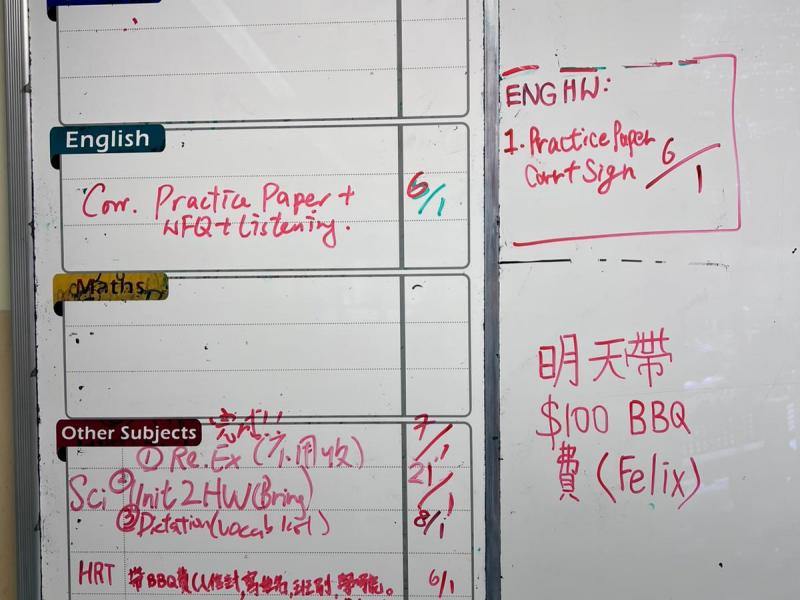 English
Corr. Practice Paper +
WFQ + Listening.
6/1
Maths
Other Subjects
完成
① Re.Ex (不用收)
7/1
Sci ② Unit 2 HW (Bring)
21/1
③ Dictation (vocab list)
8/1
HRT 帶BBQ費(以信封,寫姓名,班別,學號)。
6/1
ENG HW:
1. Practice Paper
Corr + Sign
6/1
明天帶
$100 BBQ
費 (Felix)